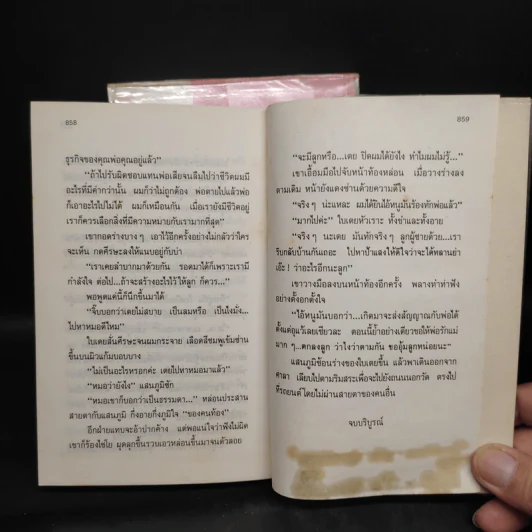 858
ธุรกิจของคุณพ่อคุณอยู่แล้ว”
“ถ้าไปรับผิดชอบแทนพ่อเสียจนลืมไปว่าชีวิตผมมี
อะไรที่มีค่ากว่านั้น ผมก็ว่าไม่ถูกต้อง พ่อตายไปแล้วพ่อ
ก็เอาอะไรไปไม่ได้ ผมก็เหมือนกัน เมื่อเรายังมีชีวิตอยู่
เราก็ควรเลือกสิ่งที่มีความหมายกับเรามากที่สุด”
เขากอดร่างบางๆ เอาไว้อีกครั้งอย่างไม่กลัวว่าใคร
จะเห็น กดศีรษะลงให้แนบอยู่กับบ่า
“เราเคยลำบากมาด้วยกัน รอดมาได้ก็เพราะเรามี
กำลังใจ ต่อไป...ถ้าจะสร้างอะไรไว้ให้ลูก ก็ควร...”
พอพูดแค่นี้ก็นึกขึ้นมาได้
“จิ๊บบอกว่าเตยไม่สบาย เป็นลมหรือ เป็นไงมั่ง...
ไปหาหมอดีไหม”
ใบเตยสั่นศีรษะจนผมกระจาย เลือดสีชมพูเข้มซ่าน
ขึ้นบนผิวแก้มบอบบาง
“ไม่เป็นอะไรหรอกค่ะ เตยไปหาหมอมาแล้ว”
“หมอว่ายังไง” แสนภูมิซัก
“หมอเขาก็บอกว่าเป็นธรรมดา...” หล่อนประสาน
สายตากับแสนภูมิ กึ่งอายกึ่งภูมิใจ “ของคนท้อง”
อีกฝ่ายแทบจะอ้าปากค้าง แต่พอแน่ใจว่าฟังไม่ผิด
เขาก็ร้องไชโย ผุดลุกขึ้นรวบเอวหล่อนขึ้นมาจนตัวลอย
859
“จะมีลูกหรือ...เตย ปิดผมได้ยังไง ทำไมผมไม่รู้...”
เขาเอื้อมมือไปจับหน้าท้องหล่อน เมื่อวางร่างลง
ตามเดิม หน้ายังแดงซ่านด้วยความดีใจ
“จริงๆ น่ะแหละ ผมได้ยินไอ้หนูมันร้องทักพ่อแล้ว”
“มากไปค่ะ” ใบเตยหัวเราะ ทั้งขำและทั้งอาย
“จริงๆ นะเตย มันทักจริงๆ ลูกผู้ชายด้วย...เรา
รีบกลับบ้านกันเถอะ ไปหาป้าแสงให้ดีใจว่าจะได้หลานย่า
เอ๊ะ! ว่าอะไรอีกนะลูก”
เขาวางมือลงบนหน้าท้องอีกครั้ง พลางทำท่าฟัง
อย่างตั้งอกตั้งใจ
“ไอ้หนูมันบอกว่า...เกิดมาจะส่งสัญญาณกับพ่อได้
ตั้งแต่อุแว้เลยเชียวละ ตอนนี้ย้ำอย่างเดียวขอให้พ่อรักแม่
มากๆ...ตกลงลูก ว่าไงว่าตามกัน ขออุ้มลูกหน่อยนะ”
แสนภูมิช้อนร่างของใบเตยขึ้น แล้วพาเดินออกจาก
ศาลา เลียบไปตามริมสระเพื่อจะไปยังถนนนอกวัด ตรงไป
ที่รถยนต์โดยไม่ผ่านสายตาของคนอื่น
จบบริบูรณ์